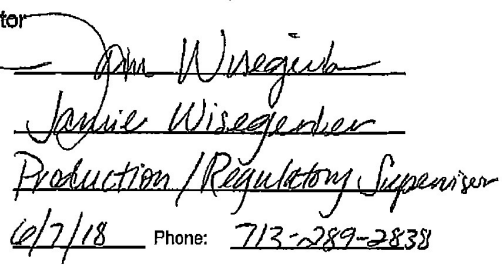 tor
Jamie Wisegerber
Production / Regulatory Supervisor
6/7/18 Phone: 713-289-2838